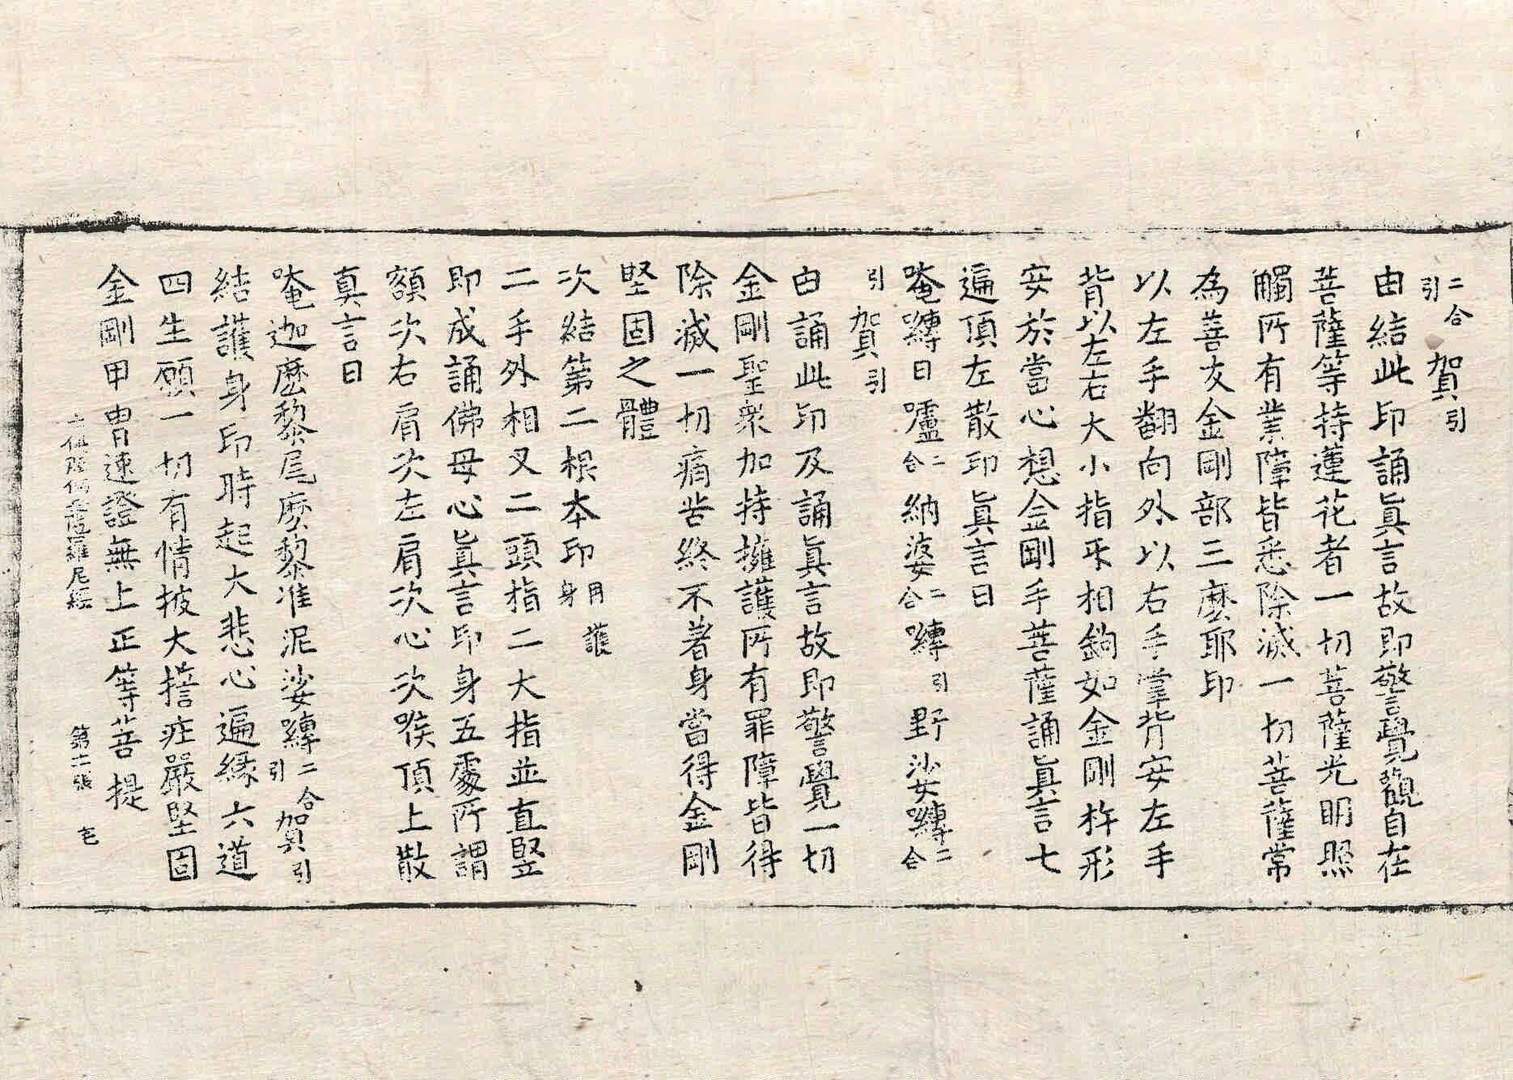 二合引賀引
由結此印誦眞言故即警覺觀自在
菩薩等持蓮花者一切菩薩光明照
觸所有業障皆悉除滅一切菩薩常
為善友金剛部三麽耶印
以左手翻向外以右手掌背安左手
背以左右大小指互相鉤如金剛杵形
安於當心想金剛手菩薩誦眞言七
遍頂左散印眞言曰
唵嚩日嚧二合納婆二合嚩引野娑嚩二合
引賀引
由誦此印及誦眞言故即警覺一切
金剛聖衆加持擁護所有罪障皆得
除滅一切痛苦終不著身當得金剛
堅固之體
次結第二根本印用護身
二手外相叉二頭指二大指並直竪
即成誦佛母心眞言印身五處所謂
額次右肩次左肩次心次喉頂上散
眞言曰
唵迦麽黎尾麽黎准泥娑嚩二合引賀引
結護身印時起大悲心遍緣六道
四生願一切有情披大誓莊嚴堅固
金剛甲冑速證無上正等菩提
陁羅尼經 第十張